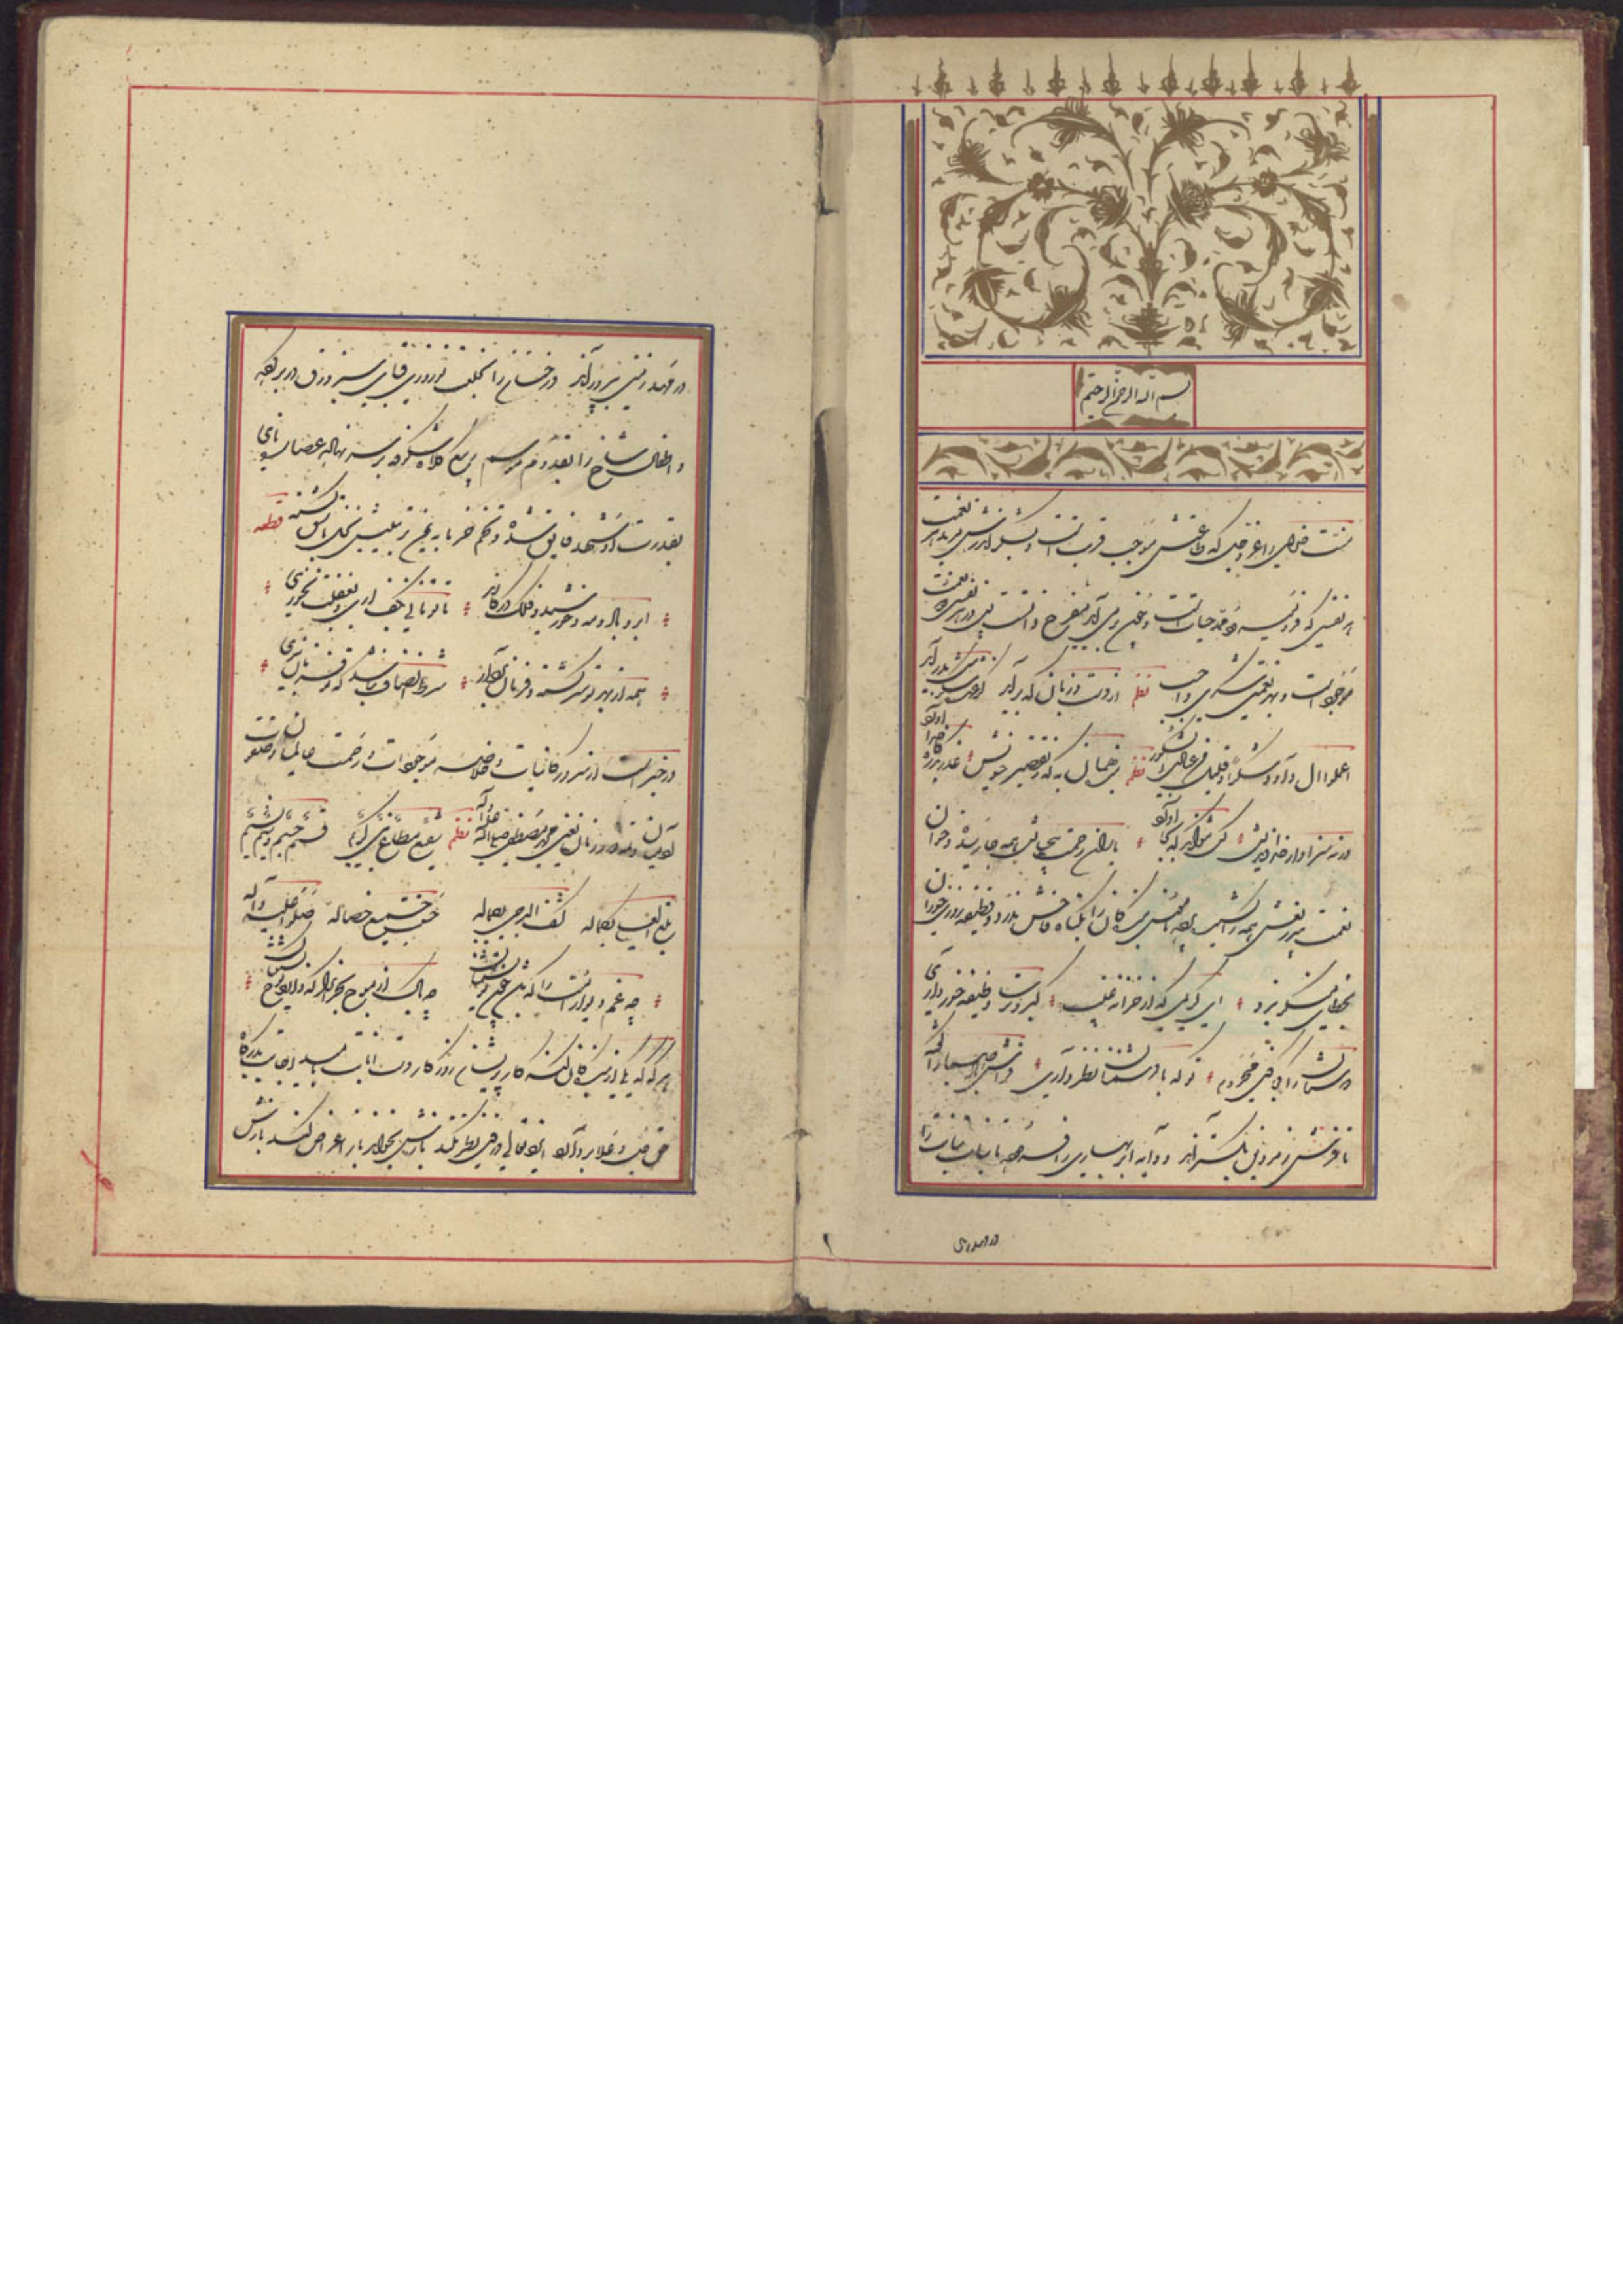 بسم الله الرحمن الرحیم
منت خدای را عز و جل که طاعتش موجب قربت است و بشکر اندرش مزید نعمت
هر نفسی که فرو میرود ممد حیات است و چون بر می آید مفرح ذات پس در هر نفسی دو نعمت
موجود است و بهر نعمتی شکری واجب نظم از دست و زبان که برآید کز عهده شکرش بدر آید
اعملوا آل داود شکرا و قلیل من عبادی الشکور نظم بنده همان به که ز تقصیر خویش عذر بدرگاه خدا آورد
ورنه سزاوار خداوندیش کس نتواند که بجا آورد باران رحمت بی حسابش همه جا رسیده و خوان
نعمت بیدریغش همه جا کشیده پرده ناموس بندگان را بگناه فاحش ندرد و وظیفه روزی خواران
بخطای منکر نبرد ای کریمی که از خزانه غیب گبر و ترسا وظیفه خور داری
دوستان را کجا کنی محروم تو که با دشمنان نظر داری فراش باد صبا را گفته
تا فرش زمردین بگسترد و دایه ابر بهاری را فرموده تا بنات نبات را
در مهد زمین
در مهد زمین بپرورد درختان را بخلعت نوروزی قبای سبز ورق در بر کرده
و اطفال شاخ را بقدوم موسم ربیع کلاه شکوفه بر سر نهاده عصاره نای
بقدرت او شهد فایق شده و تخم خرما به یمن تربیتش نخل باسق گشته قطعه
ابر و باد و مه و خورشید و فلک در کارند تا تو نانی بکف آری و بغفلت نخوری
همه از بهر تو سرگشته و فرمان بردار شرط انصاف نباشد که تو فرمان نبری
در خبر است از سرور کاینات و خلاصه موجودات و رحمت عالمیان و صفوت
آدمیان و تتمه دور زمان یعنی محمد مصطفی صلی الله علیه و آله نظم شفیع مطاع نبی کریم قسیم جسیم نسیم وسیم
بلغ العلی بکماله کشف الدجی بجماله حسنت جمیع خصاله صلوا علیه و آله
چه غم دیوار امت را که باشد چون تو پشتیبان چه باک از موج بحر آنرا که دارد نوح کشتیبان
هر گه که یکی از بندگان گنه کار پریشان روزگار دست انابت بامید اجابت بدرگاه
حق جل و علا بردارد ایزد تعالی در وی نظر نکند بازش بخواند باز اعراض کند بازش